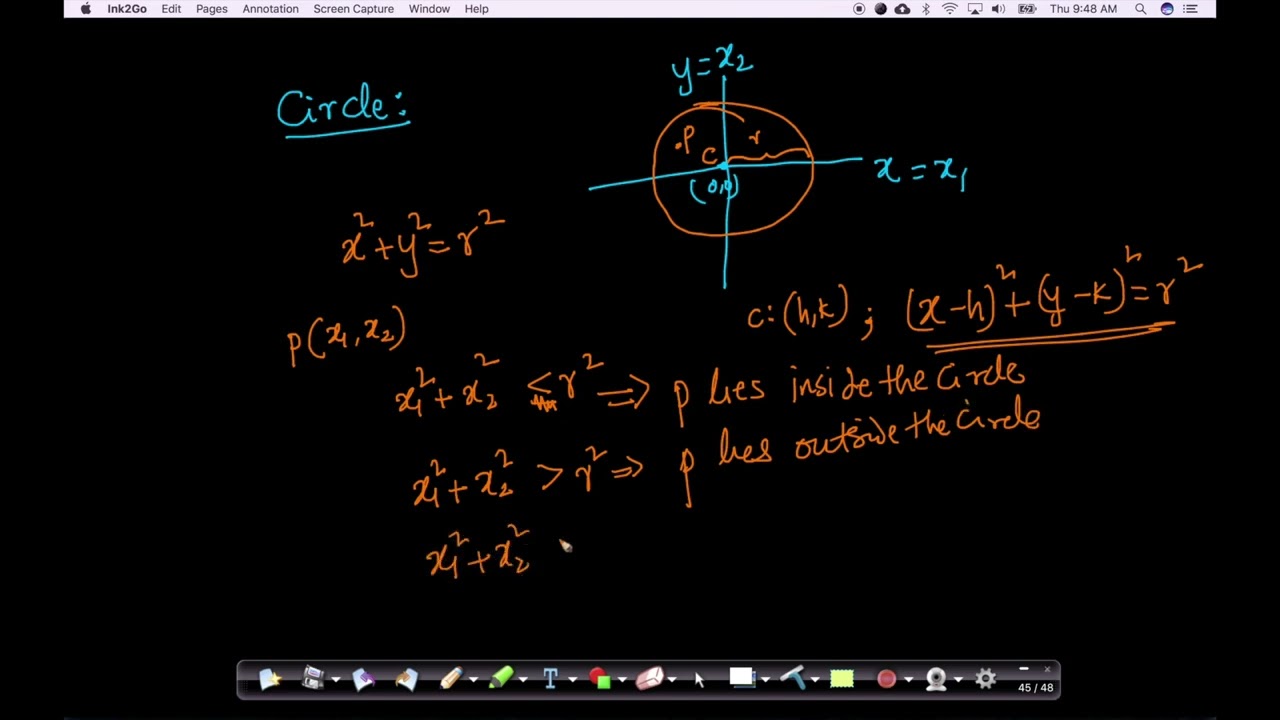 Ink2Go Edit Pages Annotation Screen Capture Window Help Thu 9:48 AM
Circle:
y = x₂
.P
r
C
(0,0)
x = x₁
x² + y² = r²
c: (h,k) ; (x-h)² + (y-k)² = r²
p(x₁, x₂)
x₁² + x₂² < r² ⇒ p lies inside the circle
x₁² + x₂² > r² ⇒ p lies outside the circle
x₁² + x₂²
T
45 / 48